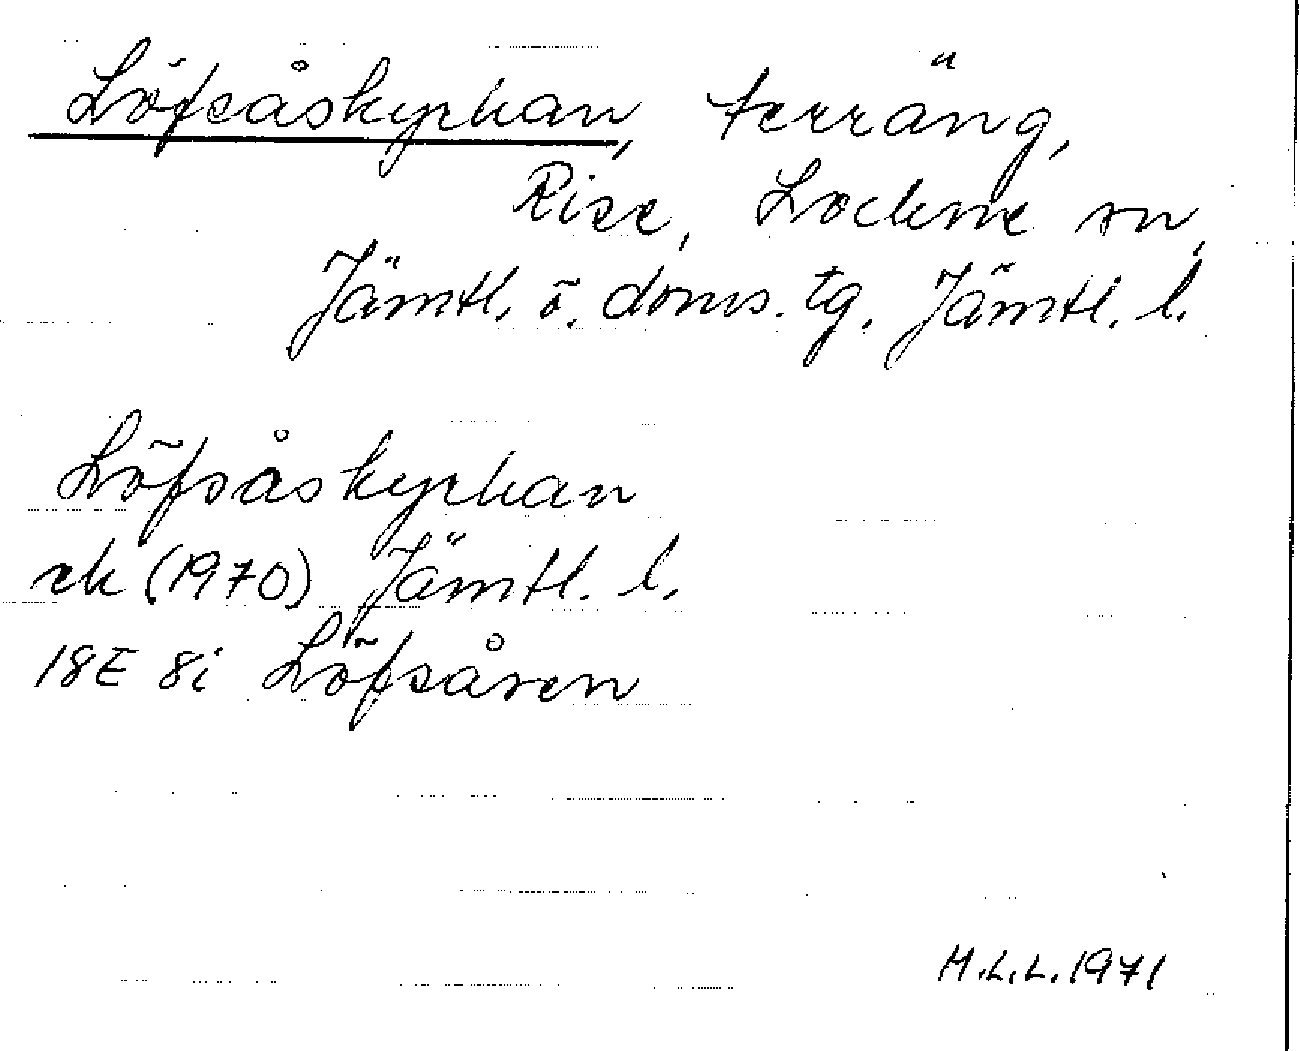 Löfsåskyrkan, terräng,
Rise, Lockne sn,
Jämtl. ö. doms. tg. Jämtl. l.
Löfsåskyrkan
ek (1970) Jämtl. l.
18E 8i Löfsåsen
H.L.L. 1971